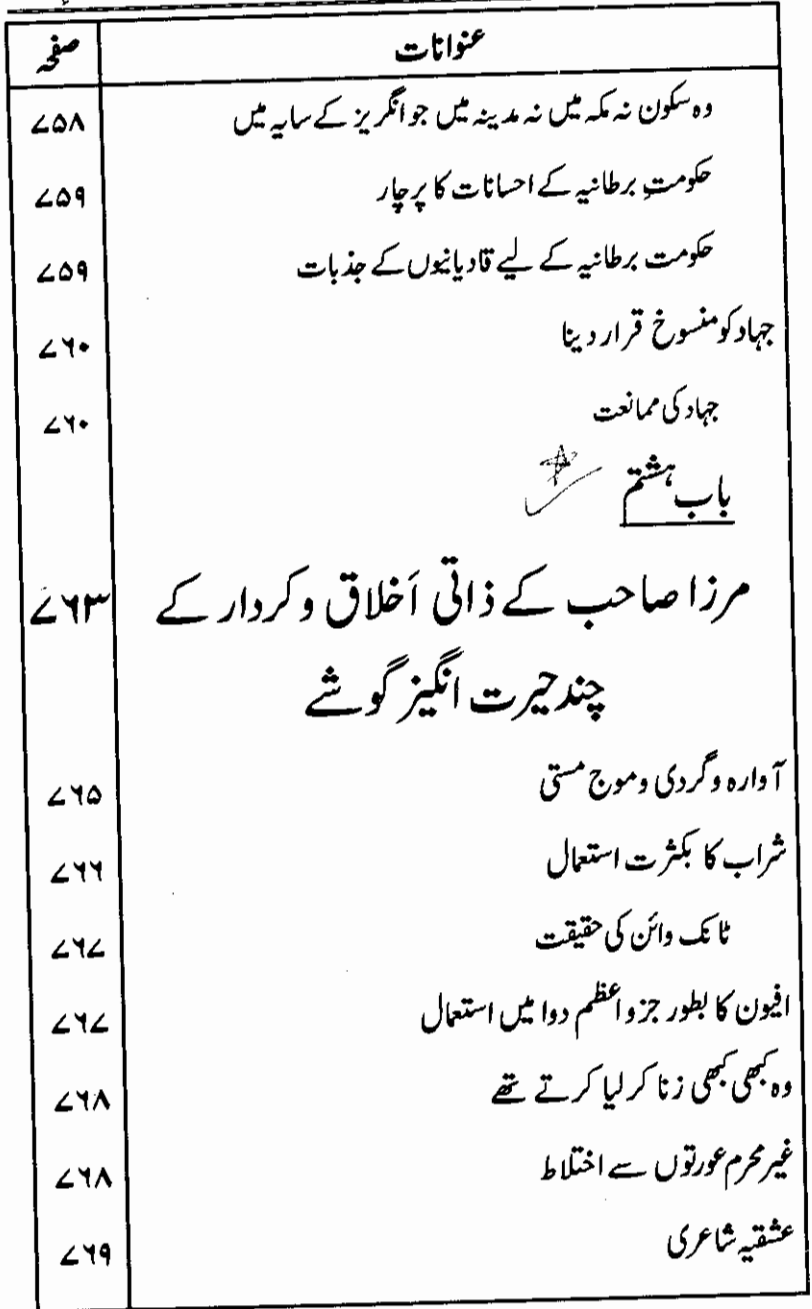 عنوانات صفحہ
وہ سکون نہ مکہ میں نہ مدینہ میں جو انگریز کے سایہ میں ۷۵۸
حکومتِ برطانیہ کے احسانات کا پرچار ۷۵۹
حکومت برطانیہ کے لیے قادیانیوں کے جذبات ۷۵۹
جہاد کو منسوخ قرار دینا ۷۶۰
جہاد کی ممانعت ۷۶۰
باب ہشتم
مرزا صاحب کے ذاتی اَخلاق و کردار کے ۷۶۳
چند حیرت انگیز گوشے
آوارہ و گردی و موج مستی ۷۶۵
شراب کا بکثرت استعمال ۷۶۶
ٹانک وائن کی حقیقت ۷۶۷
افیون کا بطور جزو اعظم دوا میں استعمال ۷۶۷
وہ کبھی کبھی زنا کر لیا کرتے تھے ۷۶۸
غیر محرم عورتوں سے اختلاط ۷۶۸
عشقیہ شاعری ۷۶۹